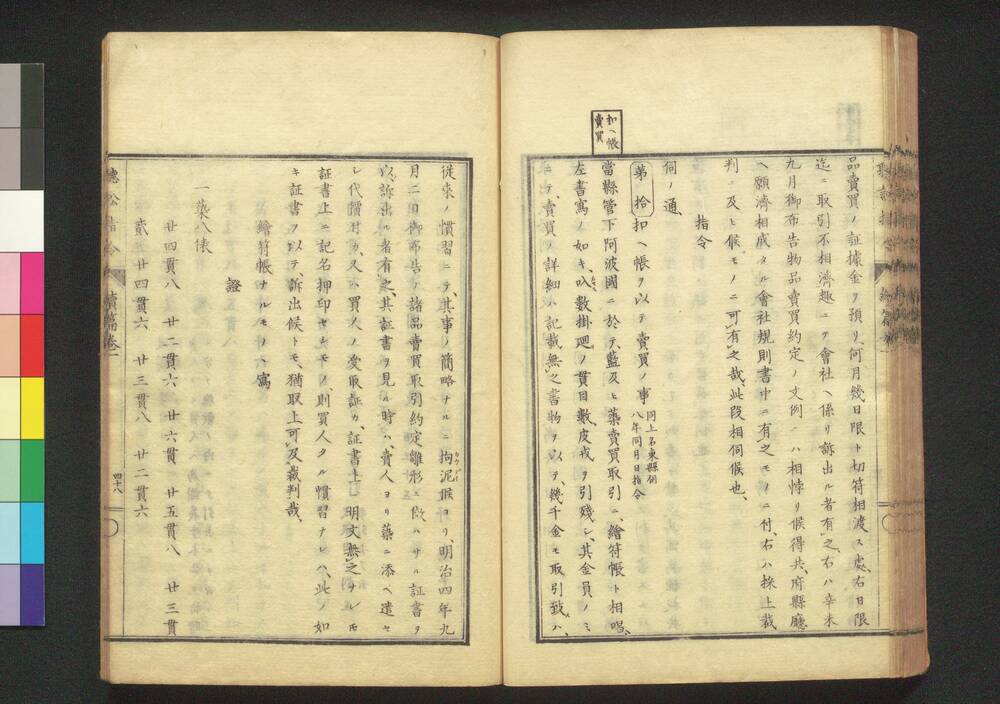 品賣買ノ証據金ヲ預リ、何月幾日限ト切符相渡ス處、右日限
迄ニ取引不相濟趣ニテ會社ヘ係リ訴出ル者有之、右ハ辛未
九月御布告物品賣買約定ノ文例ニハ相悖リ候得共、府縣廳
ヘ願濟相成タル會社規則書中ニ有之モノニ付、右ハ採上裁
判ニ及ヒ候モノニ可有之哉、此段相伺候也、
指令
伺ノ通
第拾
扣ヘ帳ヲ以テ賣買ノ事
同上名東縣伺
八年同月日指令
扣ヘ帳
賣買
當縣管下阿波國ニ於テ、藍及ヒ藥賣買取引ニ、繪符帳ト相唱、
左書寫ノ如キ、叺數掛𢌞ノ貫目數皮戎ヲ引殘シ、其金員ノミ
ニテ賣買ノ詳細ハ記載無之書物ヲ以テ、幾千金モ取引致ハ、
從來ノ慣習ニテ、其事ノ簡略ナルニ拘泥候ヨリ、明治四年九
月二日御布告ノ諸品賣買取引約定雛形ニ倣ハサル証書ヲ
以、訴出ル者有之、其証書ヲ見ル時ハ、賣人ヨリ藥ニ添ヘ遣セ
シ代價付カ、又ハ買人ノ受取証カ、証書上ニ明文無之ナレモ
証書上ニ記名押印セシモノ則買人タル慣習ナレハ、此ノ如
キ証書ヲ以テ、訴出候トモ、猶取上可及裁判哉、
繪符帳ナルモノヽ寫
證
一藥八俵
廿四貫八　廿二貫六　廿六貫　廿五貫八　廿三貫
貳　廿四貫六　廿三貫八　廿二貫六
聽訟指令
續篇卷一
四十八